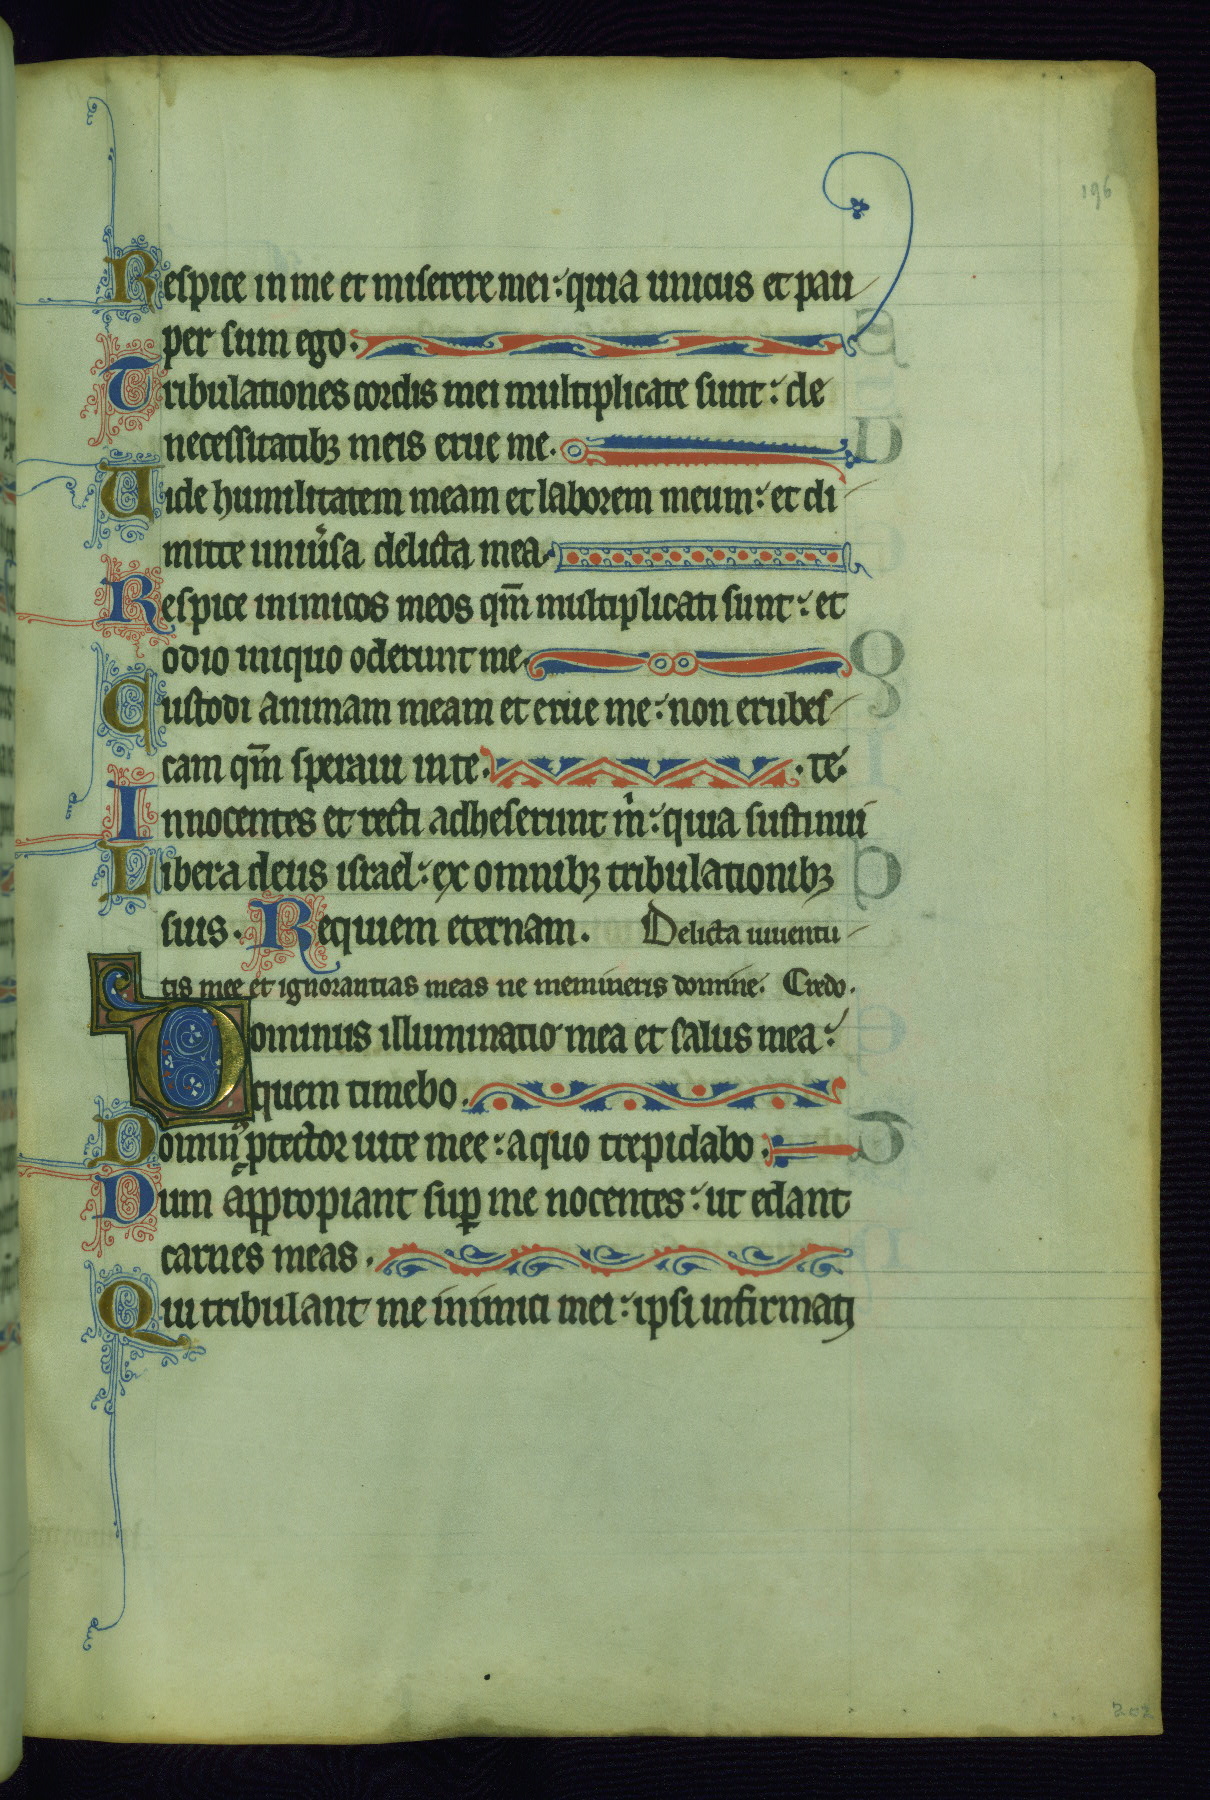 196
Respice in me et miserere mei: quia unicus et pau
per sum ego.
Tribulationes cordis mei multiplicate sunt: de
necessitatibꝫ meis erue me.
Uide humilitatem meam et laborem meum: et di
mitte uniu'sa delicta mea.
Respice inimicos meos qm̄ multiplicati sunt: et
odio iniquo oderunt me.
Custodi animam meam et erue me: non erubes
cam qm̄ speraui in te. te.
Innocentes et recti adheserunt m̊: quia sustinui
Libera deus israel: ex omnibꝫ tribulationibꝫ
suis. Requiem eternam. Delicta iuuentu
tis mee et ignorantias meas ne memineris domine. Credo.
Dominus illuminatio mea et salus mea:
quem timebo.
Domin᷒ ꝓtector uite mee: a quo trepidabo.
Dum appropiant suꝑ me nocentes: ut edant
carnes meas.
Qui tribulant me inimici mei: ipsi infirmati
202